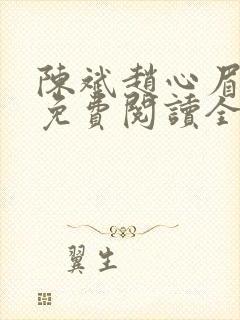 陳斌趙心眉
免費閱讀全
翼生